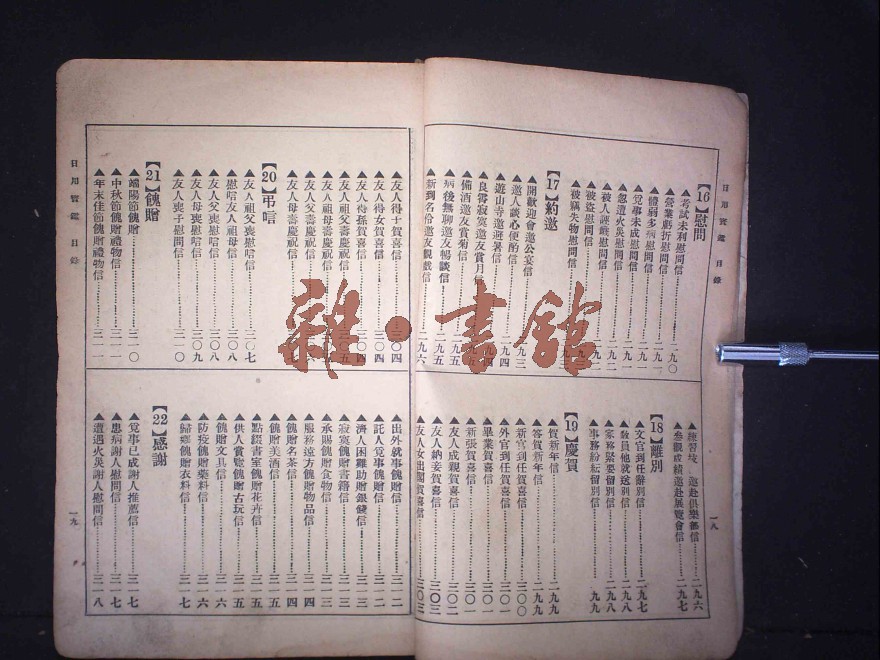 日用寶鑑 目錄
一八
【16】慰問
▲考試未利慰問信……二九〇
▲營業虧折慰問信……二九〇
▲體弱多病慰問信……二九一
▲覓事未成慰問信……二九一
▲忽遭火災慰問信……二九一
▲被人誣衊慰問信……二九二
▲被盜慰問信
▲被竊失物慰問信
【17】約邀
▲開歡迎會邀公宴信……二九三
▲邀人談心便酌信……二九四
▲遊山寺邀避暑信……二九四
▲良霄寂寞邀友賞月信
▲備酒邀友賞菊信……二九五
▲病後無聊邀友暢談信……二九五
▲新到名伶邀友觀戲信……二九六
▲邀赴俱樂部信……二九六
▲參觀成績邀赴展覽會信……二九七
【18】離別
▲文官到任辭別信……二九七
▲敎員他就送別信……二九八
▲家務緊要留別信……二九八
▲事務紛紜留別信……二九九
【19】慶賀
▲賀新年信……二九九
▲答賀新年信……二九九
▲新官到任賀喜信……三〇〇
▲外官到任賀喜信……三〇〇
▲畢業賀喜信……三〇一
▲新張賀喜信……三〇一
▲友人成親賀喜信……三〇二
▲友人納妾賀喜信……三〇三
▲友人女出閣賀喜信……三〇三
日用寶鑑 目錄
一九
▲友人得子賀喜信……三〇四
▲友人得女賀喜信……三〇四
▲友人得孫賀喜信……三〇四
▲友人祖父壽慶祝信
▲友人祖母壽慶祝信
▲友人父壽慶祝信
▲友人母壽慶祝信
【20】弔唁
▲友人祖父喪慰唁信……三〇七
▲慰唁友人祖母信……三〇八
▲友人父喪慰唁信……三〇八
▲友人母喪慰唁信……三〇九
▲友人喪子慰問信……三一〇
【21】餽贈
▲端陽節餽贈……三一〇
▲中秋節餽贈禮物信……三一一
▲年末佳節餽贈禮物信……三一一
▲出外就事餽贈信……三一二
▲託人覓事餽贈信……三一二
▲濟人困難助贈銀錢信……三一三
▲寂寞餽贈書籍信……三一三
▲承賜餽贈食物信……三一三
▲服務遠方餽贈物品信……三一四
▲餽贈名茶信……三一四
▲餽贈美酒信……三一五
▲點綴書室餽贈花卉信……三一五
▲供人賞覽餽贈古玩信……三一五
▲餽贈文具信……三一六
▲防疫餽贈藥料信……三一六
▲歸鄉餽贈衣料信……三一七
【22】感謝
▲覓事已成謝人推薦信……三一七
▲患病謝人慰問信……三一七
▲遭遇火災謝人慰問信……三一八
雜·書館